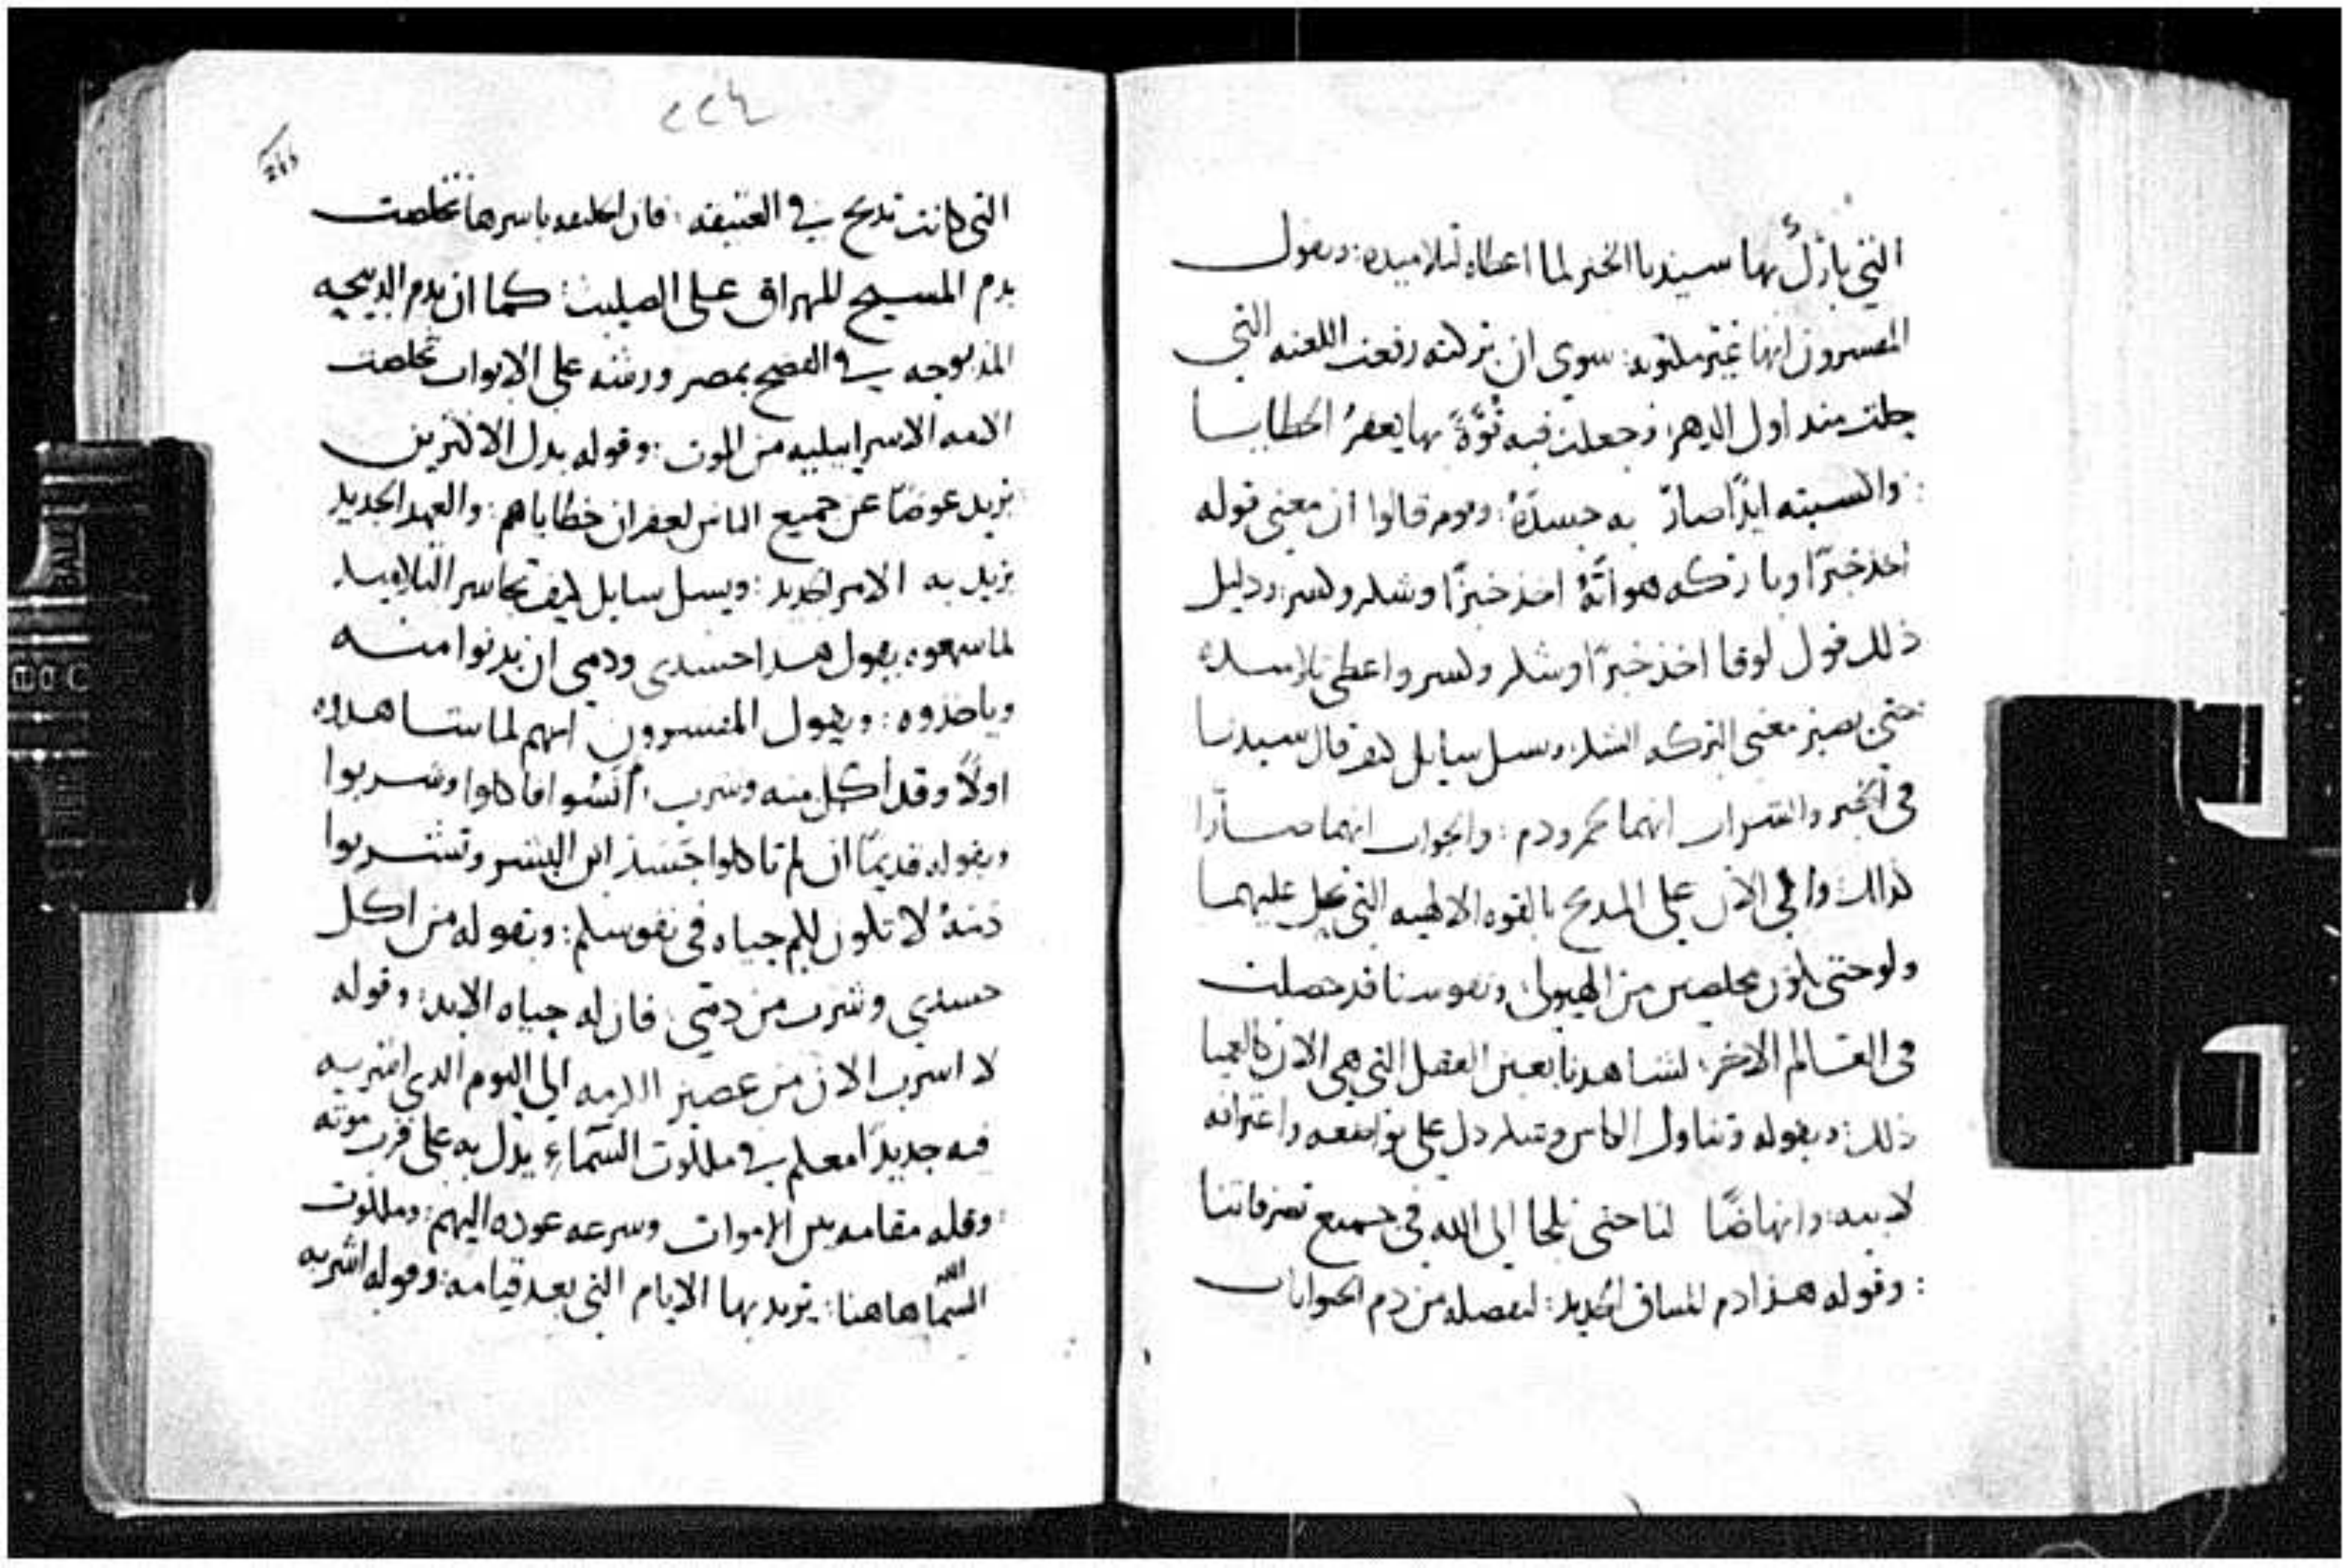 التي بارَكَ بها سيدنا الخبز لما اعطاه لتلاميده: ويقول
المفسرون انها غير مكتوبه: سوي ان بركته رفعت اللعنه التي
حلت مند اول الدهر: وجعلت فيه قُوَّةً بها يغفرُ الخطايا
: والسبته ايدًا صار به جسدَهُ: وقوم قالوا ان معني قوله
اخذ خبزًا وبارَكه هو انَّهُ اخذ خبزًا وشكر وكسر: ودليل
ذلك قول لوقا اخذ خبزًا وشكر وكسر واعطي تلاميده
حتي يصير معني البركه الشكر: ويسل سايل كيف قال سيدنا
في الخبز والشراب انهما لحم ودم: والجواب انهما صارَا
كدلك والي الان علي المدبح بالقوه الالهيه التي تحل عليهما
ولو حتي نكون مخلصين من الهيولي: ونفوسنا قد حصلت
في العالم الاخر: لشاهدنا بعين العقل التي هي الان كالعميا
ذلك: وبقوله وتناول الكاس وشكر دل علي تواضعه واعترافه
لابيه: وانهاضًا لنا حتي نلجا الي الله في جميع تصرفاتنا
: وقوله هذا دم الميثاق الجديد: لفصله من دم الحيوانات
٢٢٤
التي كانت تدبح في العتيقه: فان الخليقه باسرها تخلصت
بدم المسيح المهراق علي الصليب: كما ان بدم الدبيحه
المدبوحه في الفصح بمصر ورشه علي الابواب تخلصت
الامه الاسراييليه من الموت: وقوله بدل الاكثرين
: يريد عوضًا عن جميع الناس لغفران خطاياهم: والعهد الجديد
يريد به الامر الجديد: ويسل سايل كيف تجاسر التلاميد
لما سمعوه يقول هدا جسدي ودمي ان يدنوا منه
وياخذوه: ويقول المفسرون انهم لما شاهدوه
اولًا وقد أكل منه وشرب: أنسُوا فاكلوا وشربوا
وبقوله قديمًا ان لم تاكلوا جَسَدَ ابن البشر وتشربوا
دمَهُ لا تكون لكم حياه في نفوسكم: وبقوله من اكل
جسدي وشرب من دمَي: فان له حياه الابد: وقوله
لا اشرب الان من عصير الكرمه الي اليوم الدي اشربه
فيه جديدًا معكم في ملكوت السَّماءِ يدل به علي قرب موته
: وقله مقامه بين الاموات وسرعه عوده اليهم: وملكوت
السَّما هاهنا: يريد بها الايام التي بعد قيامه: وقوله اشربه